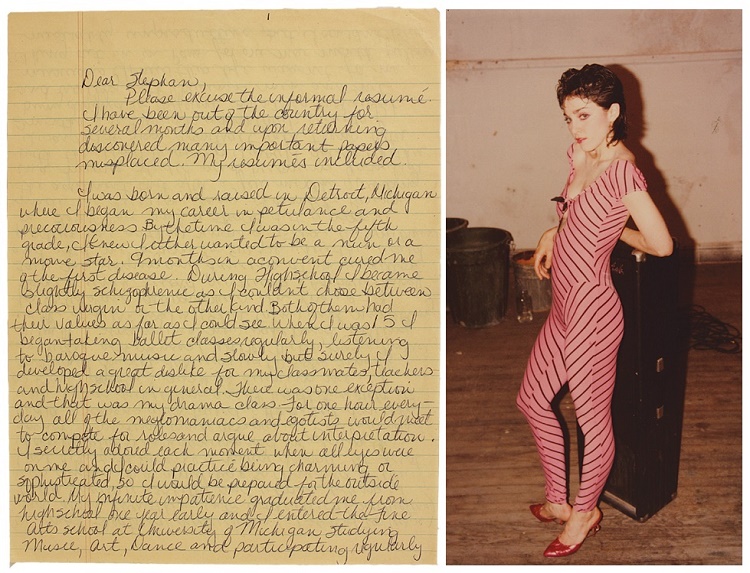 Dear Stephan,
Please excuse the informal resumé.
I have been out of the country for
several months and upon returning
discovered many important papers
misplaced. My resumés included.
I was born and raised in Detroit, Michigan
where I began my career in petulance and
precociousness. By the time I was in the fifth
grade, I knew I either wanted to be a nun or a
movie star. 9 months in a convent cured me
of the first disease. During Highschool I became
slightly schizophrenic as I couldnt chose between
class virgin or the other kind. Both of them had
their values as far as I could see. When I was 15 I
began taking ballet classes regularly, listening
to baroque music and slowly but surely I
developed a great dislike for my classmates, teachers
and highschool in general. There was one exception
and that was my drama class. For one hour every-
day all of the meglomaniacs and egotists would meet
to compete for roles and argue about interpretation.
I secretly adored each moment when all eyes were
on me and I could practice being charming or
sophisticated, so I would be prepared for the outside
world. My infinite impatience graduated me from
highschool one year early and I entered the fine
arts school at University of Michigan studying
Music, Art, Dance and participating regularly